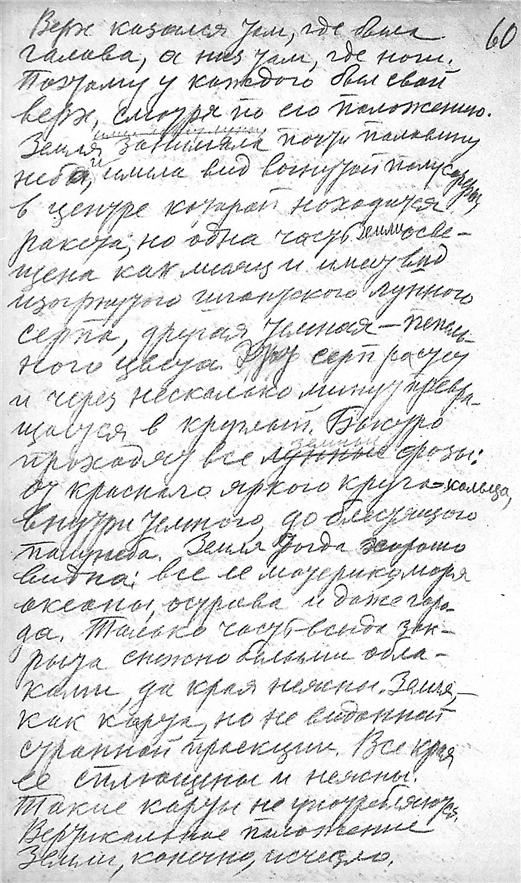 60
Верх казался там, где была
галова, а низ там, где ноги.
Поэтому у каждого был свой
верх, смотря по его положению.
Земля занимала почти половину
неба, и имела вид вогнутой полусферы,
в центре которой находится
ракета; но одна часть Земли осве-
щена как месяц и имеет вид
изогнутого гигантского лунного
серпа, другая темная — пепель-
ного цвета. серп растет
и через несколько минут превра-
щается в круглый. Быстро
проходят все лунные земные фазы:
от красного яркого круга-кольца,
внутри темного, до блестящего
полунеба. Земля тогда хорошо
видна: все ее материки, моря
океаны, острова и даже горо-
да. Только часть всегда зак-
рыта снежно белыми обла-
ками, да края неясны. Земля,—
как карта, но не виданной
странной проекции. Все края
ее сплющены и неясны.
Такие карты не употребляются.
Вертикальное положение
Земли, конечно, исчезло.